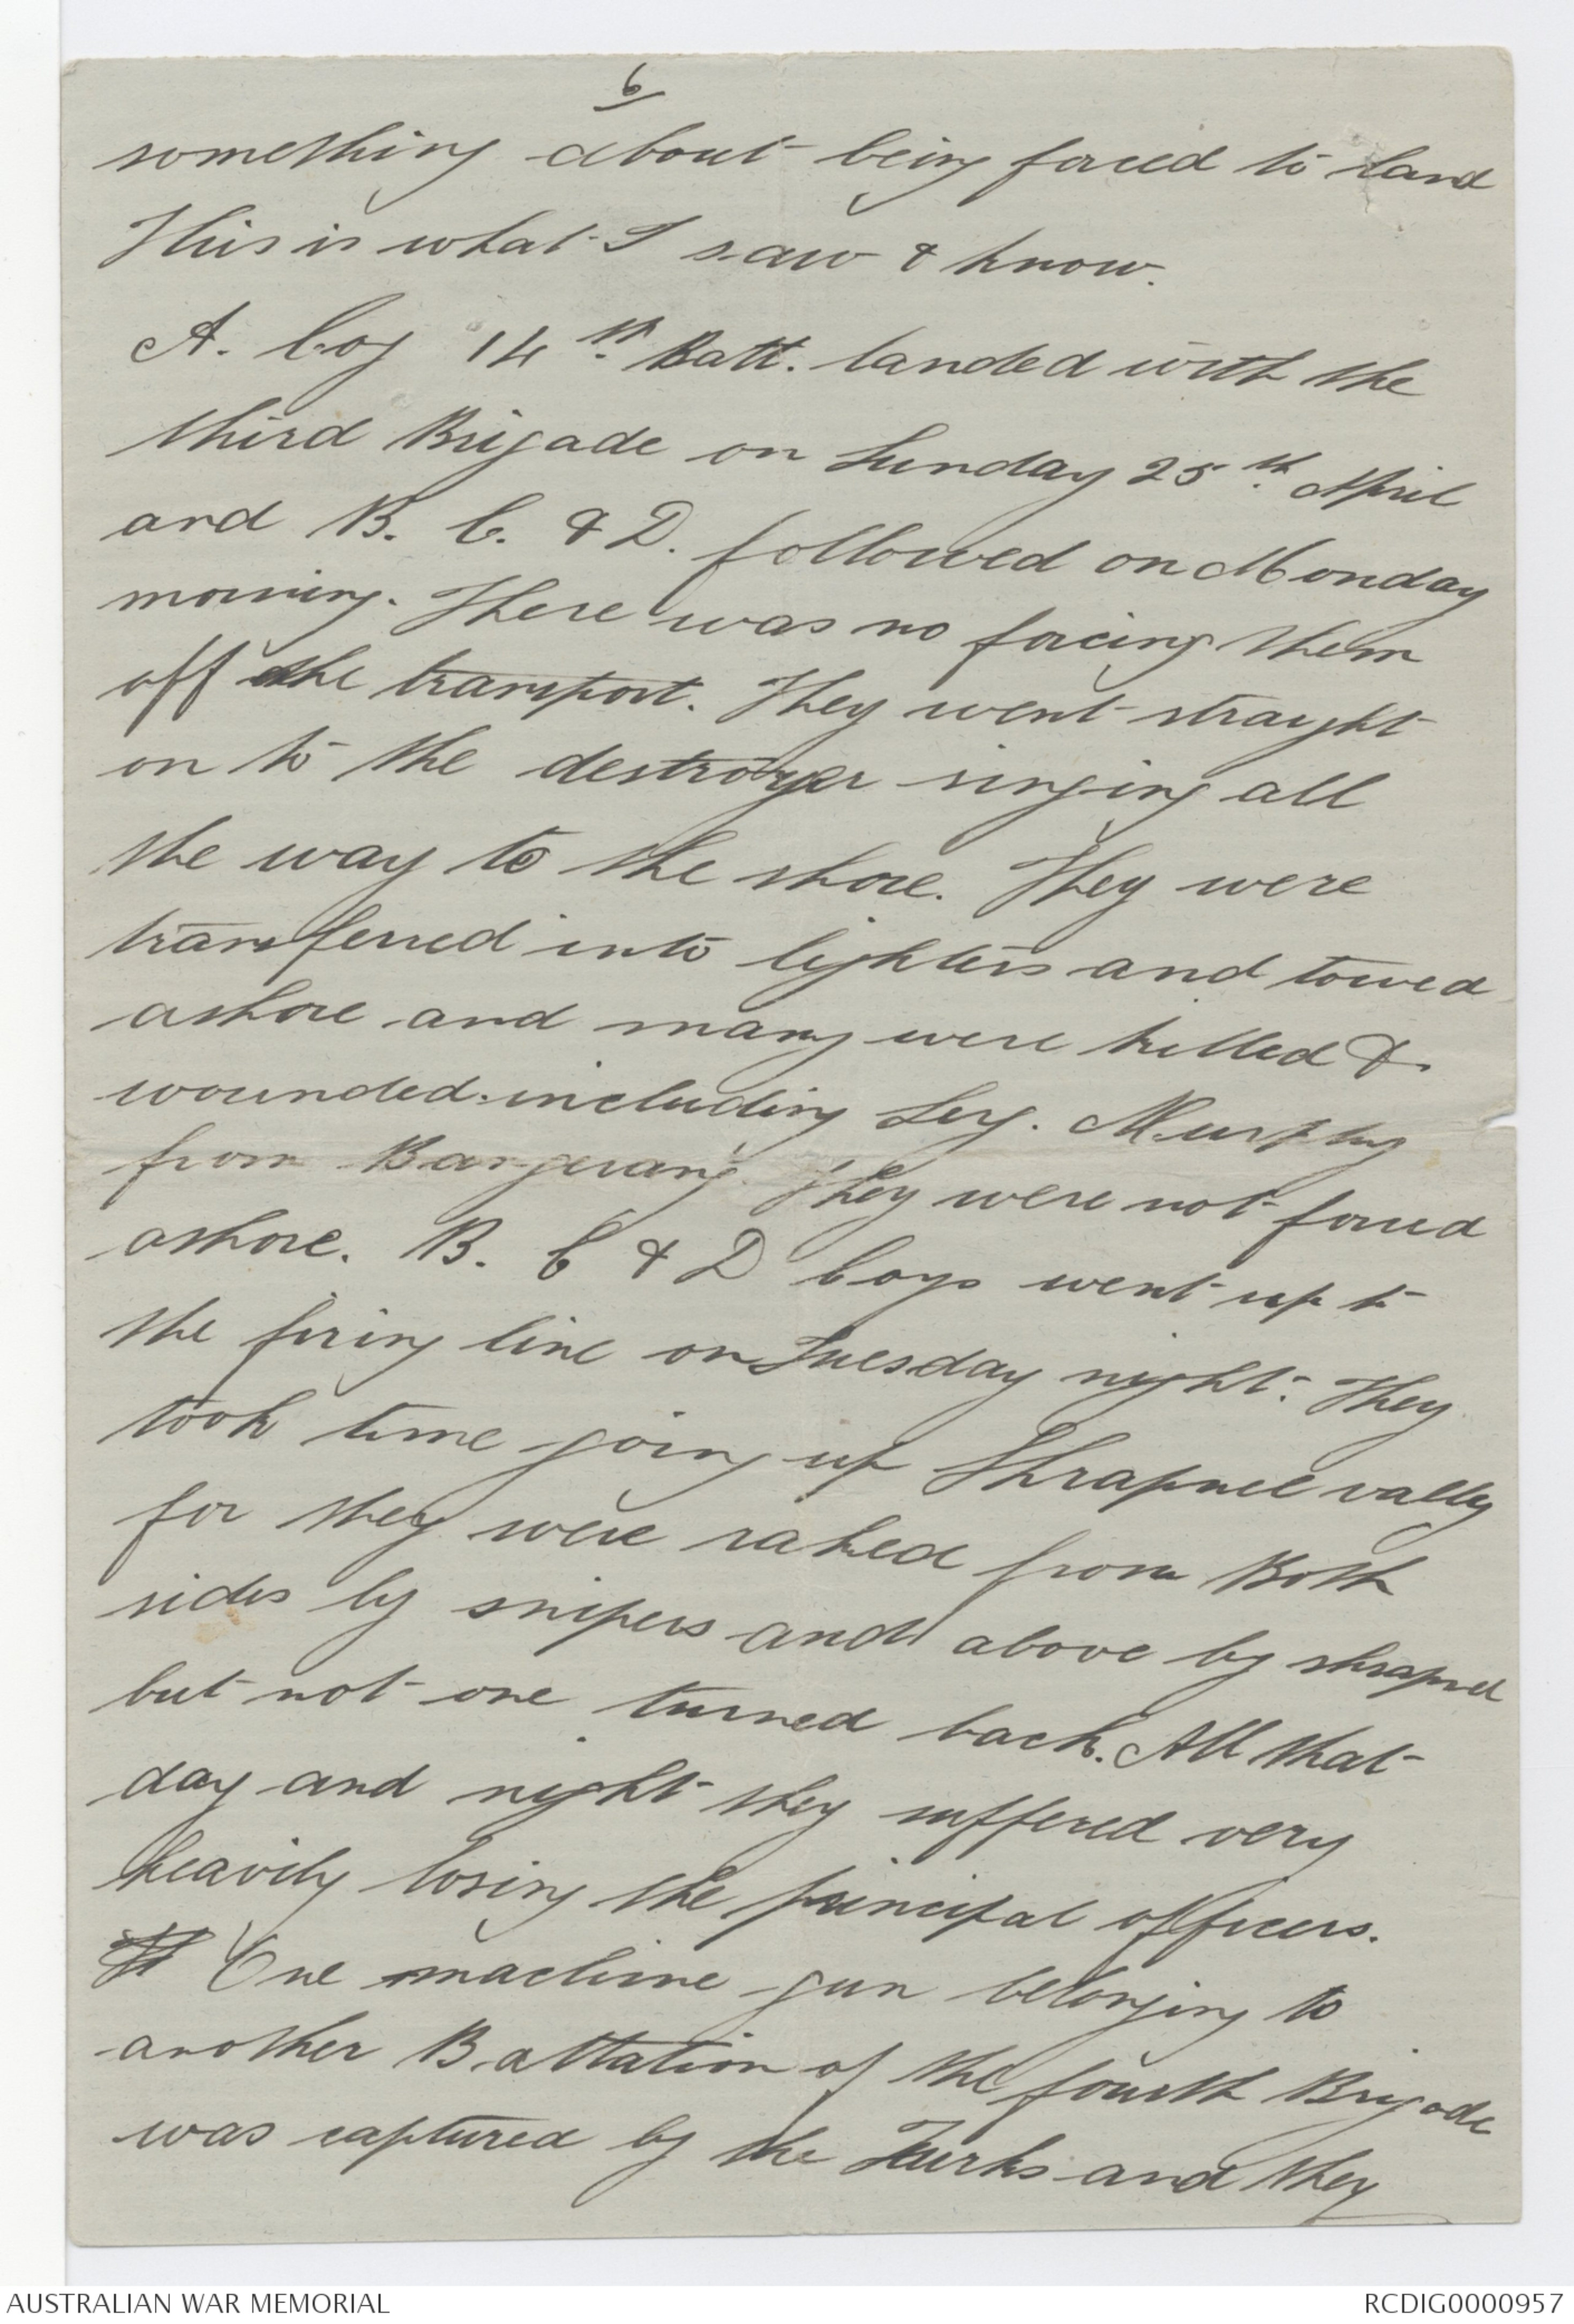 6/
something about being forced to land
This is what I saw & know.
A. Coy 14th Batt. landed with the
third Brigade on Sunday 25th April
and B. C. & D. followed on Monday
morning. There was no forcing them
off the transport. They went straight
on to the destroyer singing all
the way to the shore. They were
transferred into lighters and towed
ashore and many were killed &
wounded including Serg. Murphy
from They were not forced
ashore. B. C & D Coys went up to
the firing line on Tuesday night. They
took time going up Shrapnel valley
for they were raked from Both
sides by snipers and above by shrapnel
but not one turned back. All that
day and night they suffered very
heavily losing the principal officers.
One machine gun belonging to
another Battation of the fourth Brigade
was captured by the Turks and they
AUSTRALIAN WAR MEMORIAL
RCDIG0000957